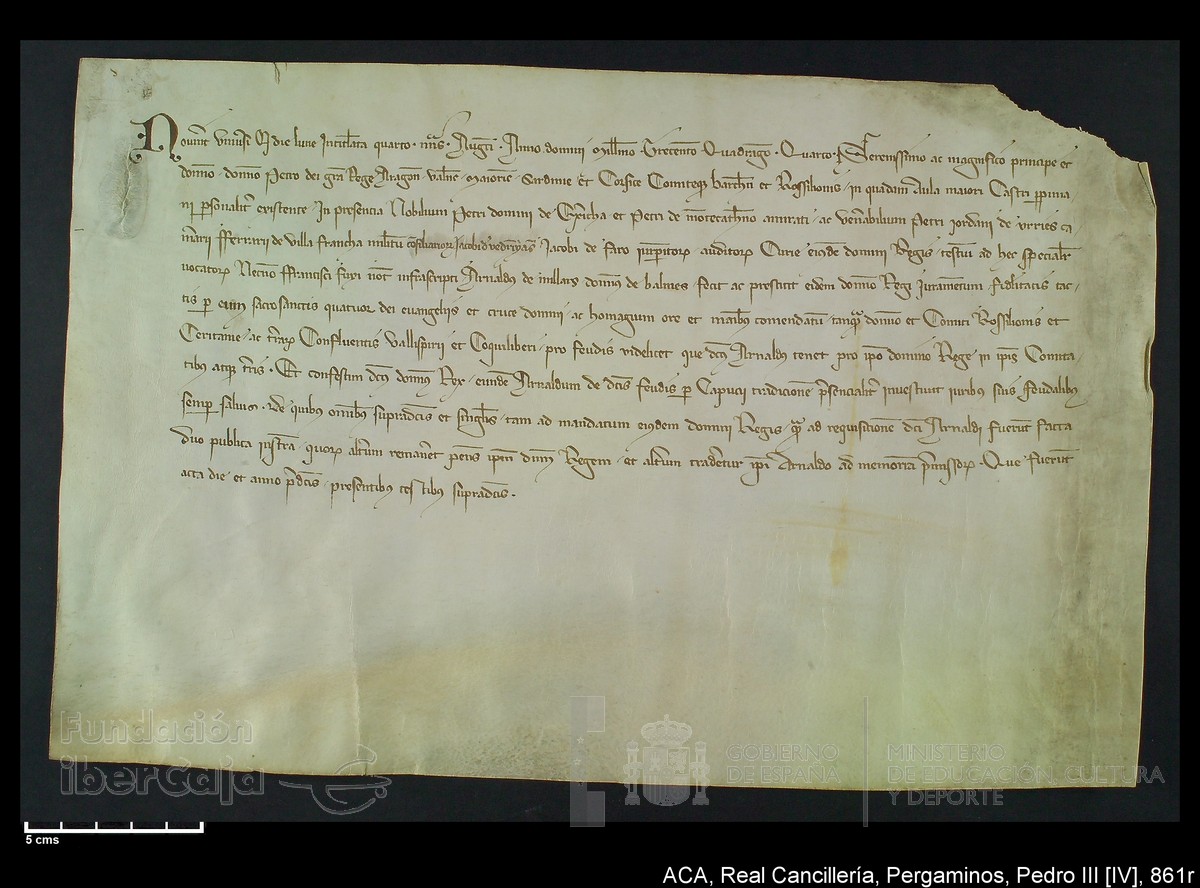 Noverint universi Q die lune Intitulata quarto · nonas · Augusti · Anno domini Millesimo · Trecentesimo · Quadragesimo · Quarto · Serenissimo ac magnifico principe et
domino · domno Petro dei gra Rege Aragon · Valencie · Maioric · Sardinie et Corsice Comiteq Barchn et Rossilionis · in quadam Aula maiori Castri perpinia
ni personaliter existente · In presencia Nobilium Petri domini de Exericha et Petri de Montecatheno amirati · ac venerabilium Petri Jordani de urries ca
marii fferrarii de villa francha militum consiliariorum Jacobi de Faro iurisperitorum · auditorum Curie eiusdem domini Regis testium ad hec specialiter
vocatorum Necnon ffrancisci fuxi not infrascripti · Arnaldus de millars domini de balmes · fecit ac prestitit eidem domino Regi Juramentum fidelitatis tac
tis per eum sacrosanctis quatuor dei evangeliis et cruce domini · ac homagium ore et manibus comendatum · tanquam domino et Comiti Rossilionis et
Ceritanie · ac terrarum Confluentis Vallispirii et Coquiliberi · pro feudis videlicet que dcus Arnaldus tenet pro ipo domino Rege in ipis Comita
tibus atque terris · Et confestim dcus dominus Rex · eundem Arnaldum de dcis feudis per Capucii tradicionem presencialiter investivit iuribus suis ffeudalibus
semper salvis · De quibus omnibus supradcis et singulis · tam ad mandatum eiusdem domini Regis · quam ad requisitionem dci Arnaldi fuerunt facta
duo publica instra · quorum alterum remaneret penes ipm dnm Regem · et alterum traderetur ipi Arnaldo ad memoriam premissorum · Que fuerunt
acta die et anno predcis · presentibus testibus supradcis ·
Fundación
iberCaja
GOBIERNO
DE ESPAÑA
MINISTERIO
DE EDUCACIÓN, CULTURA
Y DEPORTE
5 cms
ACA, Real Cancillería, Pergaminos, Pedro III [IV], 861r